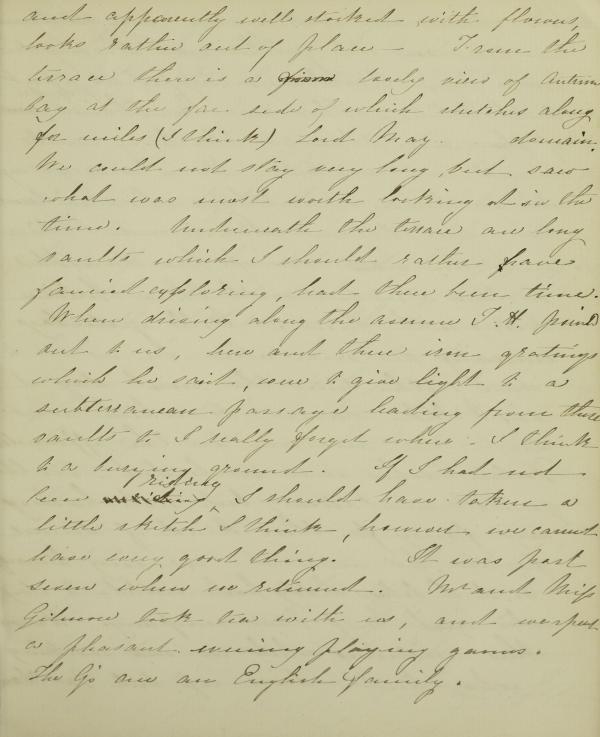 and apparently well stocked with flowers,
looks rather out of place — From the
terrace there is a lovely view of Antrim
bay at the far side of which stretches along
for miles (I think) Lord May. domain.
We could not stay very long, but saw
what was most worth looking at in the
time. Underneath the terrace are long
vaults which I should rather have
fancied exploring, had there been time.
When driving along the avenue J. H. point
out to us, here and there iron gratings
which he said, were to give light to a
subterranean passage leading from these
vaults to I really forget where. I think
to a burying ground. If I had not
been riding I should have taken a
little sketch I think, however we cannot
have every good thing. It was past
seven when we returned. Mr and Miss
Gilmore took tea with us, and we spent
a pleasant evening playing games.
The G's are an English family.